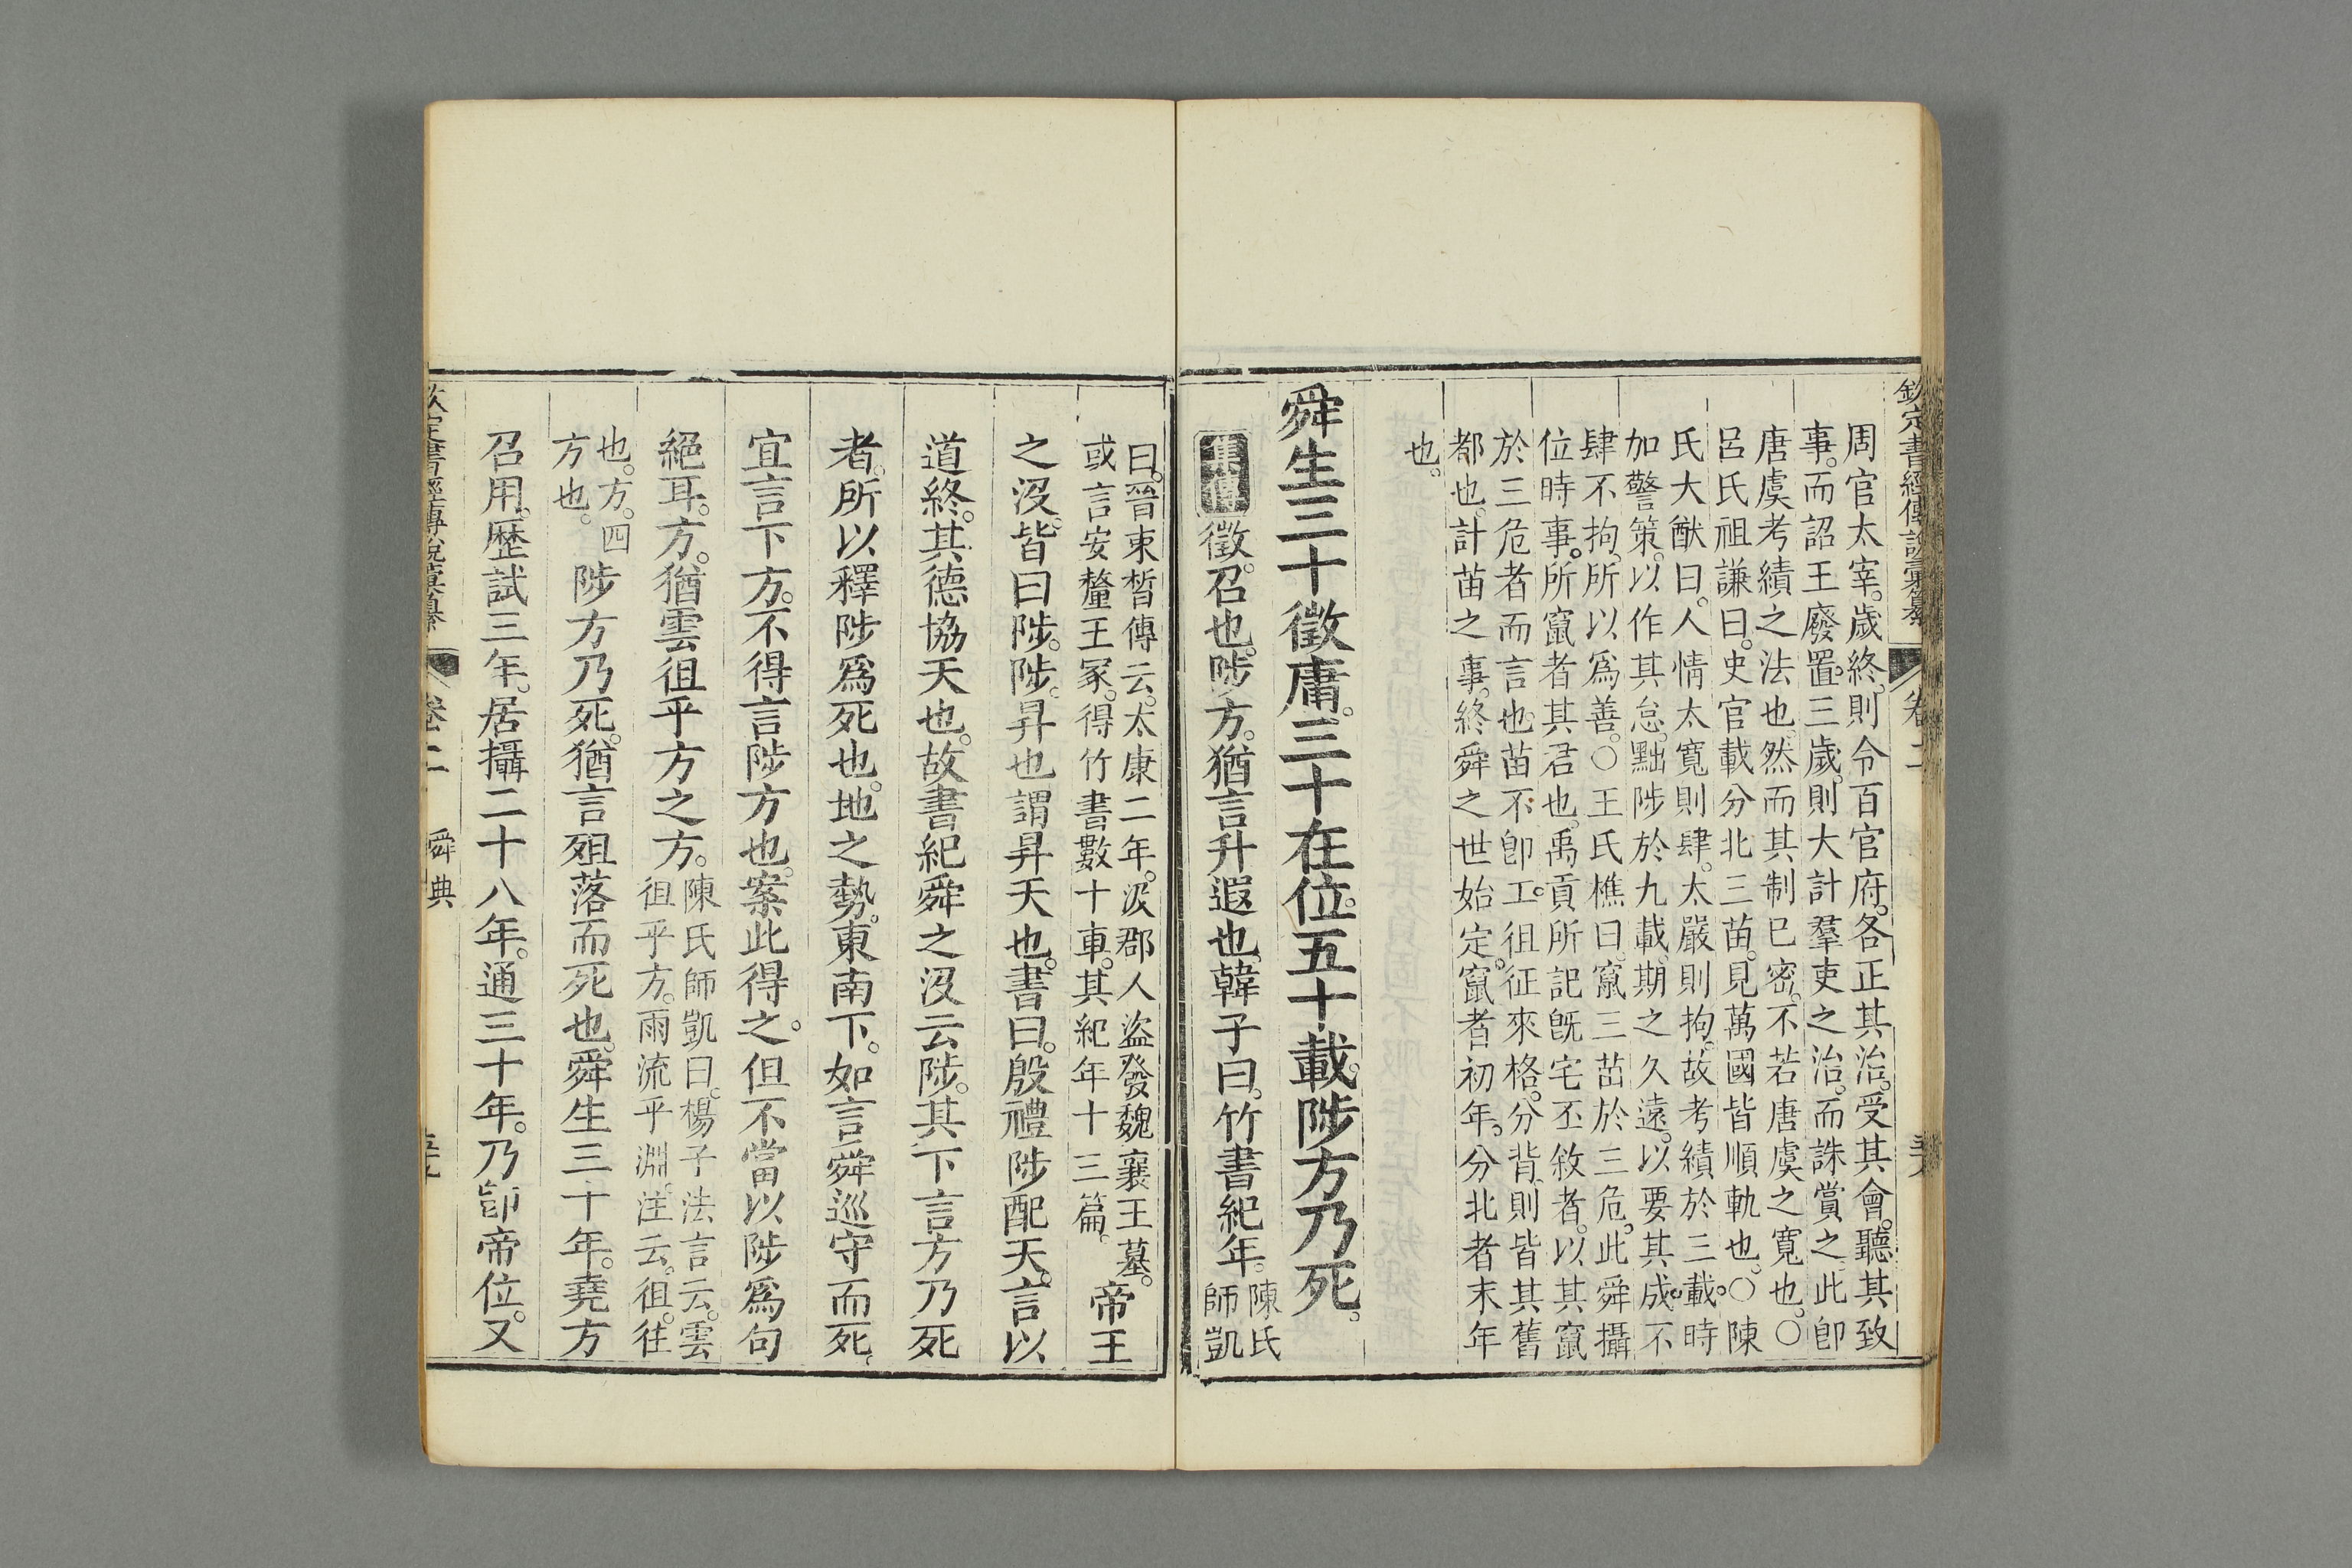 欽定書經傳說彙纂 卷二
周官太宰。歲終。則令百官府。各正其治。受其會。聽其致
事。而詔王廢置。三歲。則大計羣吏之治。而誅賞之。此卽
唐虞考績之法也。然而其制已密。不若唐虞之寬也。○
呂氏祖謙曰。史官載分北三苗。見萬國皆順軌也。○陳
氏大猷曰。人情太寬則肆。太嚴則拘。故考績於三載。時
加警策。以作其怠。黜陟於九載。期之久遠。以要其成。不
肆不拘。所以爲善。○王氏樵曰。竄三苗於三危。此舜攝
位時事。所竄者其君也。禹貢所記旣宅丕敘者。以其竄
於三危者而言也。苗不卽工。徂征來格。分背。則皆其舊
都也。計苗之事。終舜之世始定。竄者初年。分北者末年
也。
舜生三十徵庸。三十在位。五十載。陟方乃死。
集傳 徵。召也。陟方。猶言升遐也。韓子曰。竹書紀年。陳氏師凱
曰。晉束皙傳云。太康二年。汲郡人盜發魏襄王墓。或言安釐王冢。得竹書數十車。其紀年十三篇。帝王
之沒。皆曰陟。陟。昇也。謂昇天也。書曰。殷禮陟配天。言以
道終。其德協天也。故書紀舜之沒云陟。其下言方乃死
者。所以釋陟爲死也。地之勢。東南下。如言舜巡守而死。
宜言下方。不得言陟方也。案此得之。但不當以陟爲句
絕耳。方。猶雲徂乎方之方。陳氏師凱曰。楊子法言云。雲徂乎方。雨流乎淵。注云。徂。往
也。方。四方也。陟方乃死。猶言殂落而死也。舜生三十年。堯方
召用。歷試三年。居攝二十八年。通三十年。乃卽帝位。又
欽定書經傳說彙纂 卷二 舜典